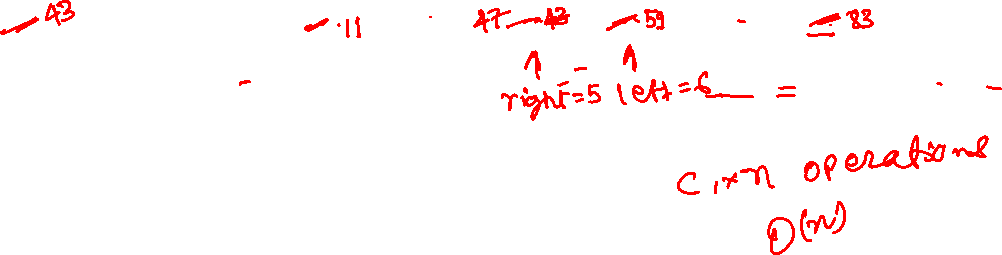 43 11 47 43 59 83
right=5 left=6
C1×n operations
O(n)